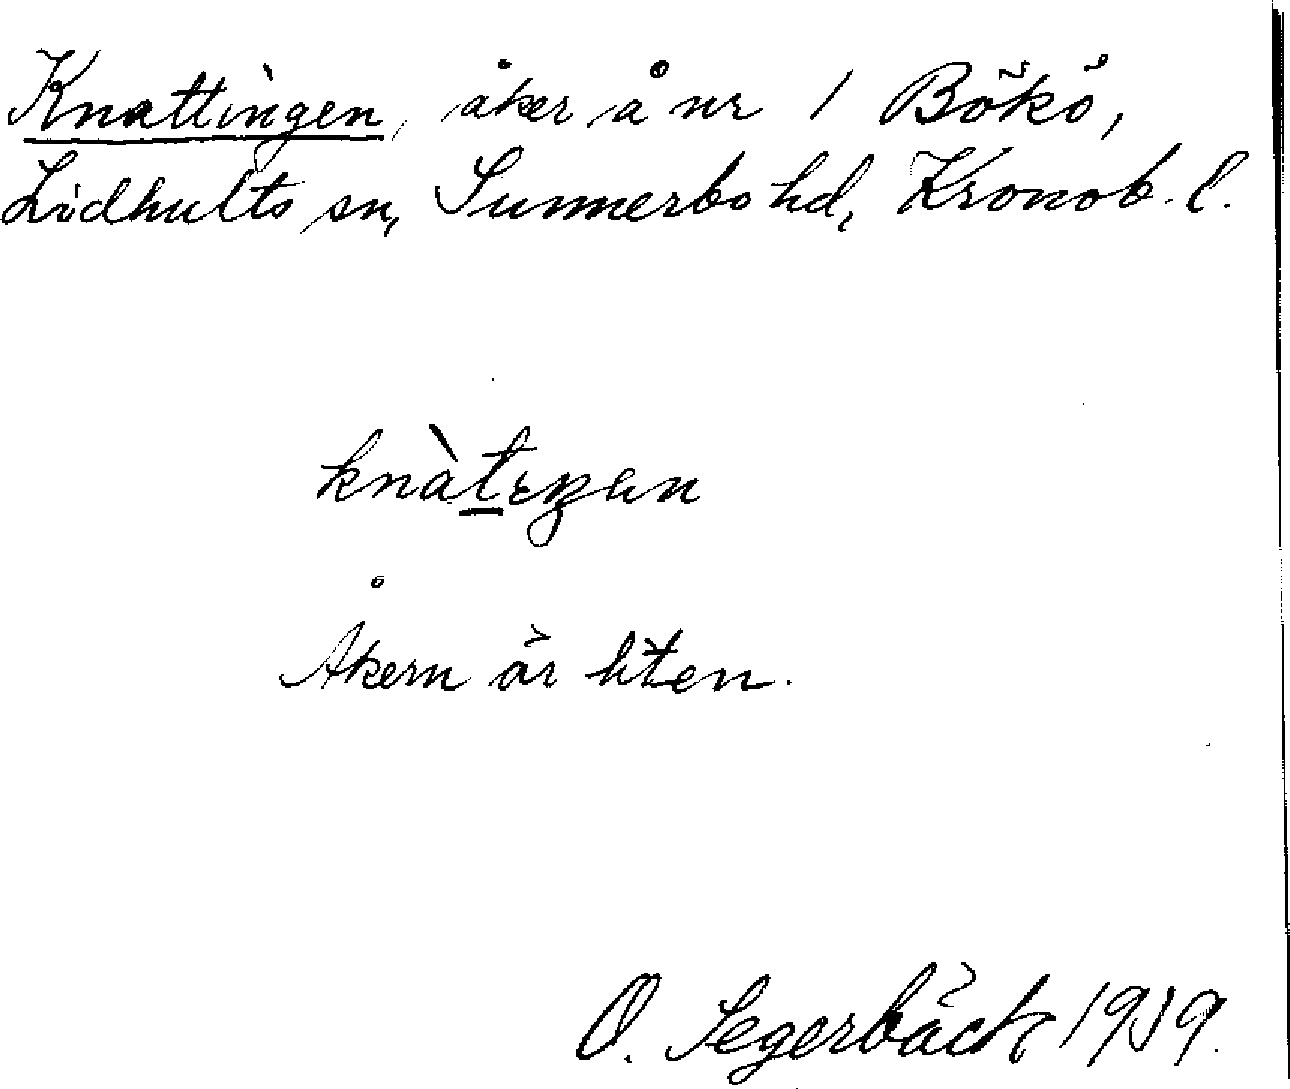 Knattingen, åker å nr 1 Bökö,
Lidhults sn, Sunnerbo hd, Kronob. l.
Åkern är liten.
O. Segerbäck 1919.